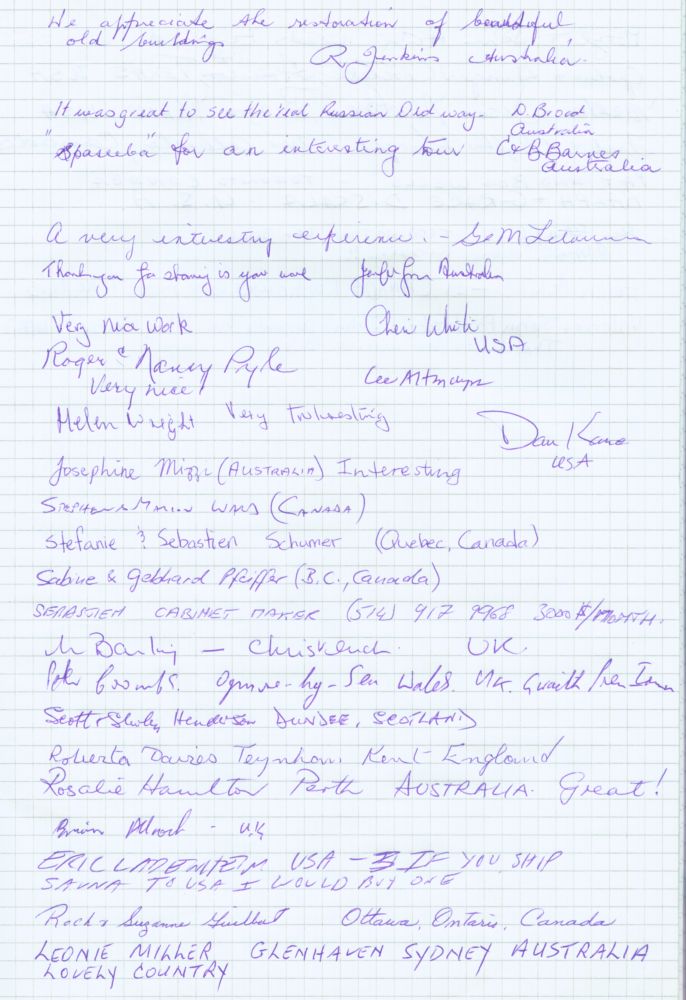 We appreciate the restoration of beautiful
old buildings
R. Jenkins Australia.
It was great to see the real Russian Old way. D. Broad
Australia
"Spaseeba" for an interesting tour C & B Barnes
Australia
A very interesting experience. -
Thank you for showing us your work Australia
Very nice work Cheri White
USA
Roger & Nancy Pyle
Very nice!
Lee Altmayer
Helen Wright Very Interesting
Dan Kane
USA
Josephine Mizzi (AUSTRALIA) Interesting
(CANADA)
Stefanie & Sebastien Schumer (Quebec, Canada)
Sabine & Gebhard Pfeiffer (B.C., Canada)
SEBASTIEN CABINET MAKER (514) 917 9968 3000 $/MONTH.
— UK.
Ogmore-by-Sea Wales. UK.
Scott & Shirley Henderson DUNDEE, SCOTLAND
Roberta Davies Teynham Kent England
Rosalie Hamilton Perth AUSTRALIA. Great!
Brian - U.K
ERIC LADENHEIM USA - IF YOU SHIP
SAUNA TO USA I WOULD BUY ONE
Roch & Suzanne Guilbert Ottawa, Ontario, Canada
LEONIE MILLER GLENHAVEN SYDNEY AUSTRALIA
LOVELY COUNTRY